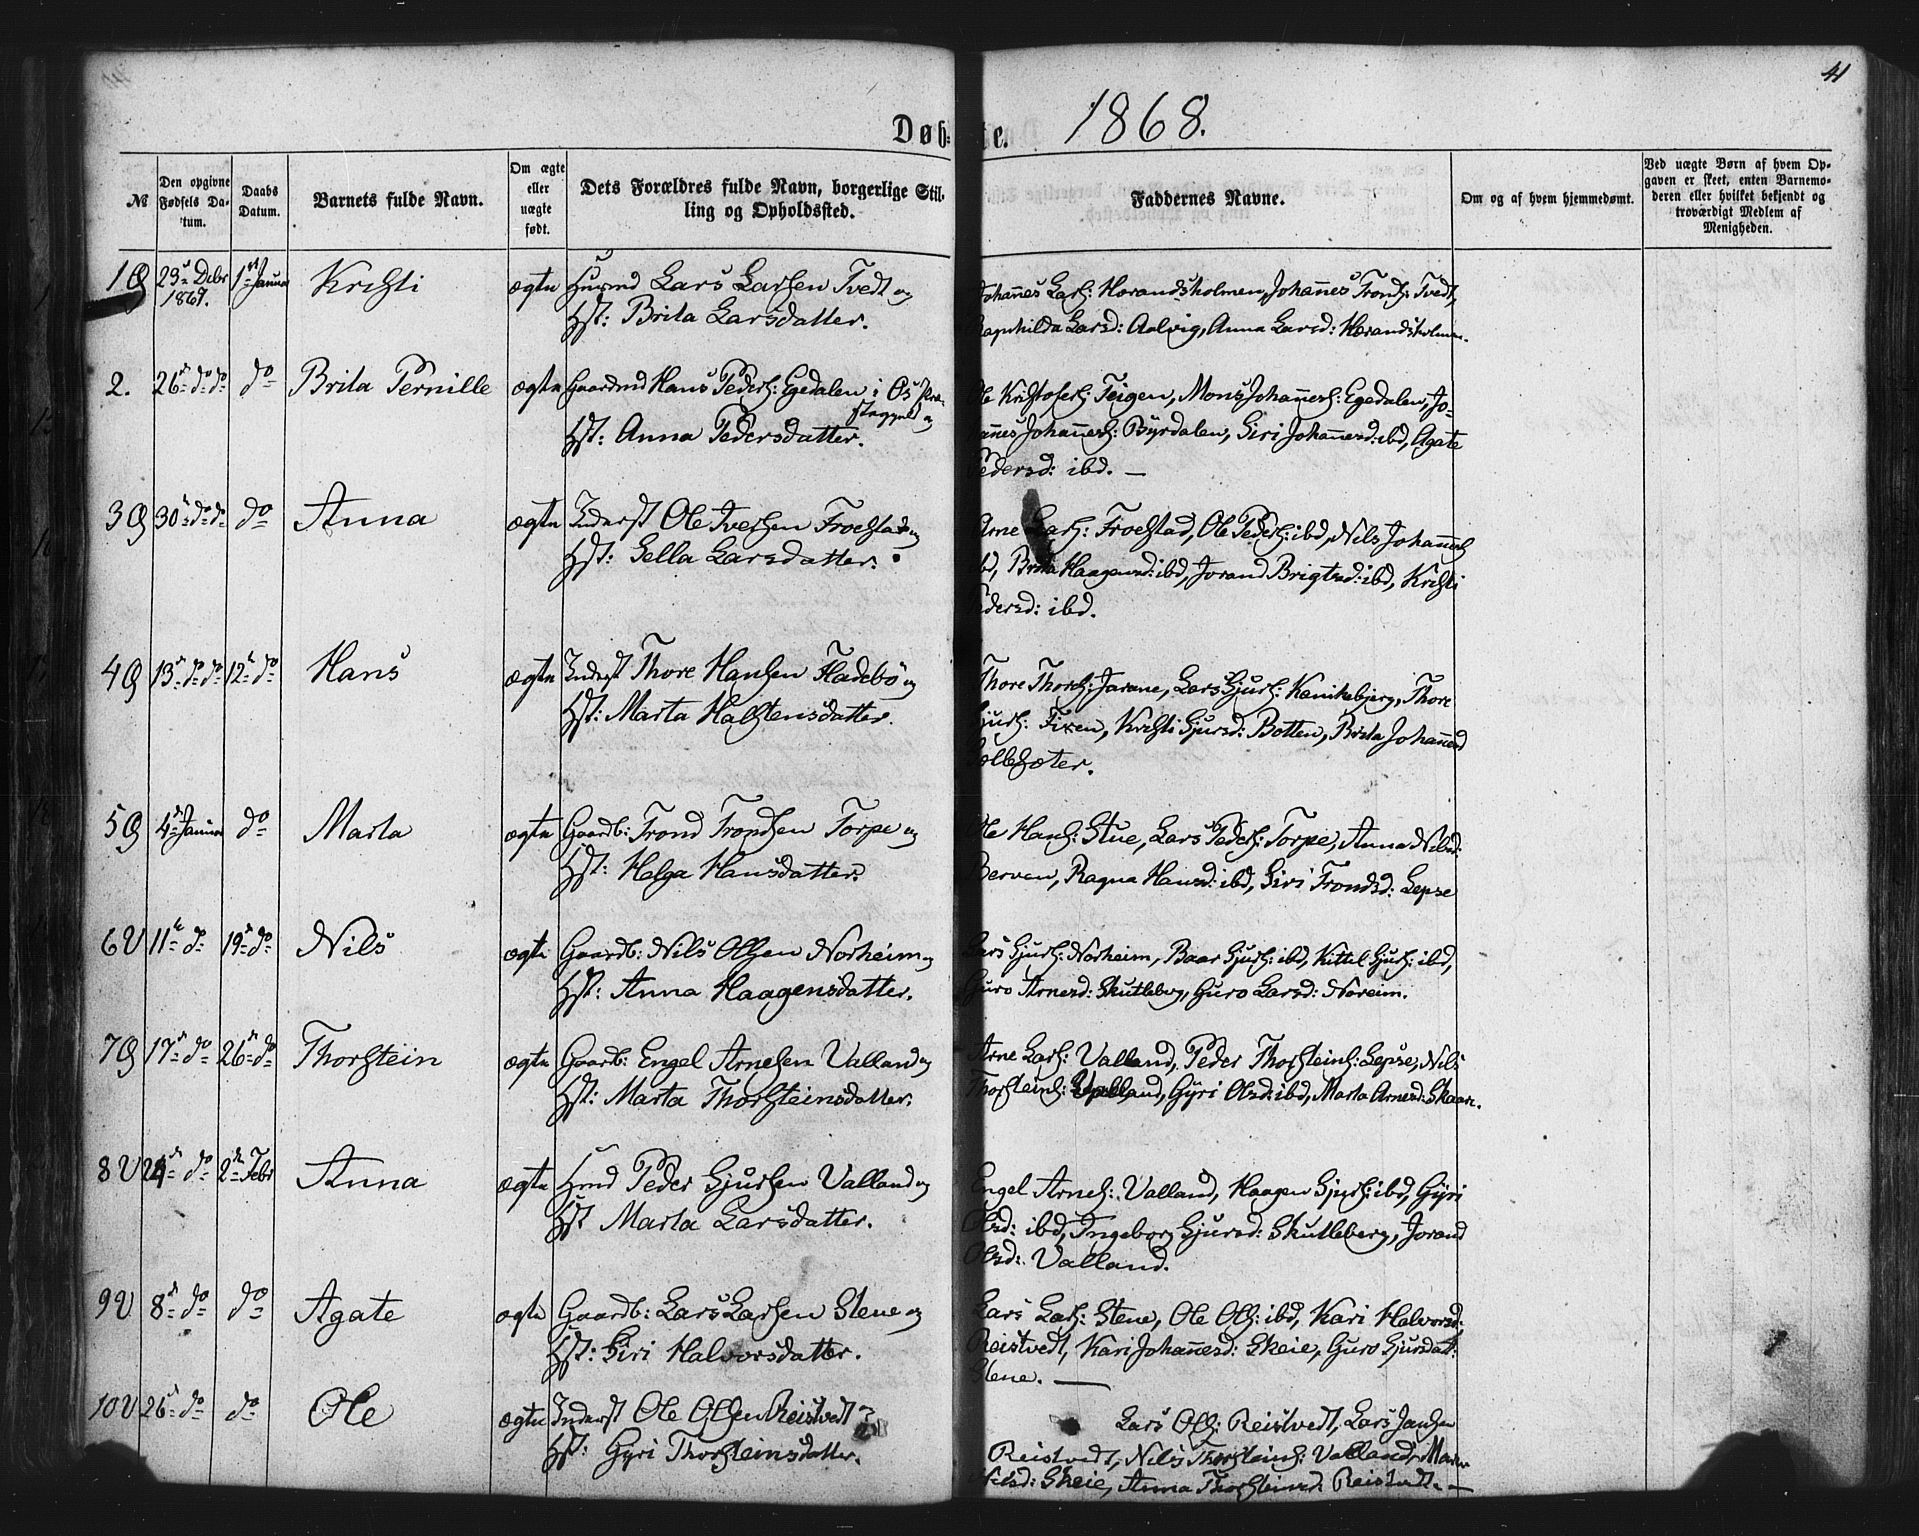 41
Døbte. 1868.
№ Den opgivne Fødsels Da- tum. Daabs Datum. Barnets fulde Navn. Om ægte eller uægte født. Dets Forældres fulde Navn, borgerlige Stil- ling og Opholdssted. Faddernes Navne. Om og af hvem hjemmedømt. Ved uægte Børn af hvem Op- gaven er skeet, enten Barnemo- deren eller hvilket bekjendt og troværdigt Medlem af Menigheden.
1 Kristi ægte Huusmd Lars Larsen Tvedt og
1867.
Hst: Brita Larsdatter.
Johannes Lars: Horandsholmen, Johannes Trond: Tvedt,
Ragnhilda Larsd: Aalvig, Anna Larsd: Horandsholmen.
2. 26 do do do Brita Pernille ægte Gaardmd Hans Peders: Egedalen i Os Præ-
stegjeld og
Hst: Anna Pedersdatter.
Ole Kristofers: Teigen, Mons Johannes: Egedalen, Jo-
hannes Johannes: Byrdalen, Siri Johannesd: ibd, Agate
Pedersd: ibd. —
3 30 do do do Anna ægte Inderst Ole Iversen Froestad og
Hst: Sella Larsdatter.
Arne Lars: Froestad, Ole Peders: ibd, Nils Johannes
ibd, Brita Haagensd: ibd, Jorand Brigtsd: ibd, Kristi
Pedersd: ibd.
4 13 do do 12 do Hans ægte Inderst Thore Hansen Fladebö og
Hst: Marta Halstensdatter.
Thore Thors: Jarane, Lars Sjurs: Kænikebjerg, Thore
Sjurs: Fixen, Kristi Sjursd: Botten, Brita Johannesd
5 4 Januar do Marta ægte Gaardb: Trond Trondsen Torpe og
Hst: Helga Hansdatter.
Ole Hans: Stue, Lars Peders: Torpe, Anna Nilsd:
Berven, Ragna Hansd: ibd, Siri Trondsd: Lepse
6 11 do 19 do Nils ægte Gaardb: Nils Olsen Norheim og
Hst: Anna Haagensdatter.
Lars Sjurs: Norheim, Baar Sjurs: ibd, Kittil Sjurs: ibd,
Guro Arnesd: Skutleberg, Guro Larsd: Noreim.
7 17 do 26 do Thorstein ægte Gaardb: Engel Arnesen Valland og
Hst: Marta Thorsteinsdatter.
Arne Lars: Valland, Peder Thorsteins: Lepse, Nils
Thorsteins: Valland, Gyri Olsd: ibd, Marta Arnesd: Skaare.
8 24 do 2 Febr Anna ægte Hmd Peder Sjursen Valland og
Hst Marta Larsdatter.
Engel Arnes: Valland, Haagen Sjurs: ibd, Gyri
Olsd: ibd, Ingeborg Sjursd: Skutleberg, Jorand
Olsd: Valland.
9 8 do do Agate ægte Gaardb: Lars Larsen Stene og
Hst: Siri Halvorsdatter.
Lars Lars: Stene, Ole Ols: ibd, Kari Halvorsd:
Reistvedt, Kari Johannesd: Skeie, Guro Sjursdat:
Stene. —
10 26 do do Ole ægte Inderst Ole Olsen Reistvedt og
Hst: Gyri Thorsteinsdatter.
Lars Ols: Reistvedt, Lars Jansen
Reistvedt, Nils Thorsteins: Valland,
Nilsd: Skeie, Anna Thorsteinsd: Reistvedt. —